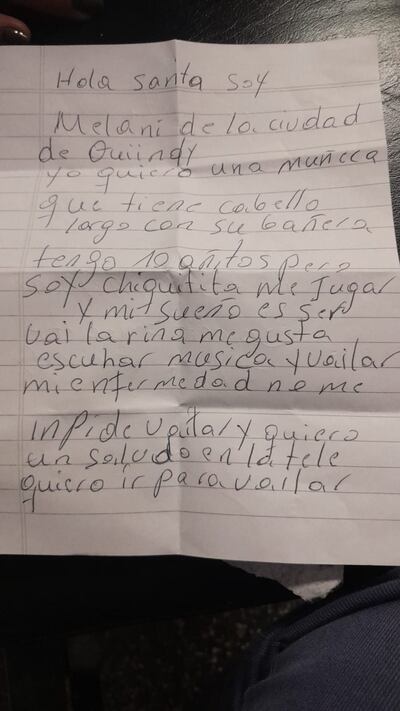 Hola santa soy
Melani de la ciudad
de Quiindy
yo quiero una muñeca
que tiene cabello
largo con su bañera
tengo 10 añitos pero
soy chiquitita me Jugar
y mi sueño es ser
vailarina me gusta
escuhar musica y vailar
mi enfermedad no me
inpide vailar y quiero
un saludo en la tele
quiero ir para vailar